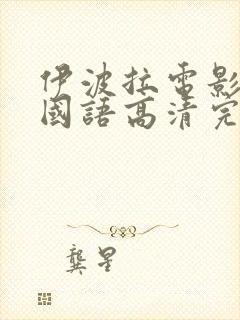 伊波拉電影
國語高清完
龔星